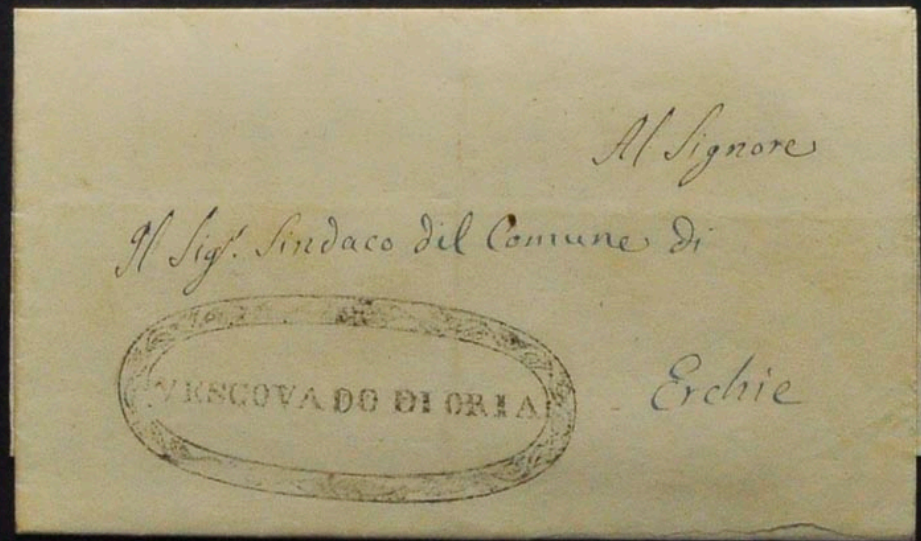 Al Signore
Il Sig.r Sindaco del Comune di
VESCOVADO DI ORIA
Erchie